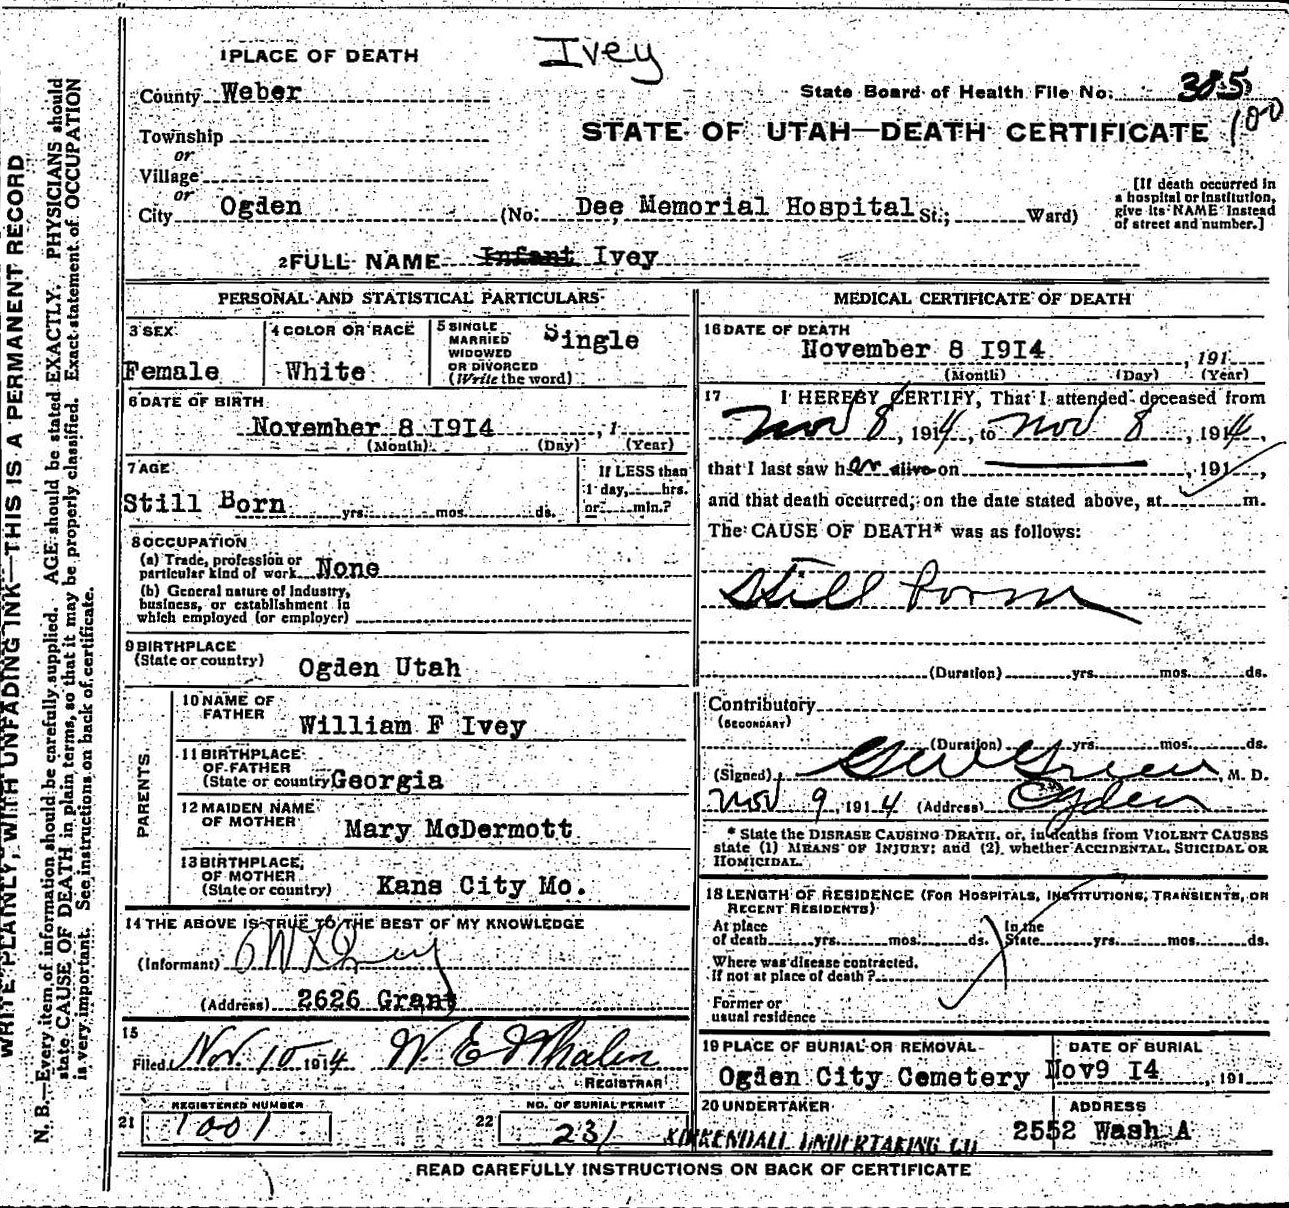 Ivey
1 PLACE OF DEATH
County Weber
State Board of Health File No. 385
100
Township
STATE OF UTAH—DEATH CERTIFICATE
or
Village
or
City Ogden (No. Dee Memorial Hospital St.; Ward)
[If death occurred in
a hospital or institution,
give its NAME instead
of street and number.]
2 FULL NAME Infant Ivey
PERSONAL AND STATISTICAL PARTICULARS
3 SEX
Female
4 COLOR OR RACE
White
5 SINGLE
MARRIED
WIDOWED
OR DIVORCED
(Write the word)
Single
6 DATE OF BIRTH
November 8 1914, 1
(Month) (Day) (Year)
7 AGE
Still Born yrs. mos. ds.
If LESS than
1 day, hrs.
or min.?
8 OCCUPATION
(a) Trade, profession or
particular kind of work None
(b) General nature of Industry,
business, or establishment in
which employed (or employer)
9 BIRTHPLACE
(State or country) Ogden Utah
PARENTS
10 NAME OF
FATHER
William F Ivey
11 BIRTHPLACE
OF FATHER
(State or country) Georgia
12 MAIDEN NAME
OF MOTHER
Mary McDermott
13 BIRTHPLACE
OF MOTHER
(State or country) Kans City Mo.
14 THE ABOVE IS TRUE TO THE BEST OF MY KNOWLEDGE
(Informant) Ivey
(Address) 2626 Grant
15
Filed Nov. 10 1914 W. E. Whalen
REGISTRAR
REGISTERED NUMBER
21 1001
NO. OF BURIAL PERMIT
22 231
MEDICAL CERTIFICATE OF DEATH
16 DATE OF DEATH
November 8 1914, 191
(Month) (Day) (Year)
17 I HEREBY CERTIFY, That I attended deceased from
Nov 8, 1914, to Nov 8, 1914,
that I last saw her alive on , 191 ,
and that death occurred, on the date stated above, at m.
The CAUSE OF DEATH* was as follows:
Still born
(Duration) yrs. mos. ds.
Contributory
(SECONDARY)
(Duration) yrs. mos. ds.
(Signed) Green, M. D.
Nov 9, 1914 (Address) Ogden
* State the DISEASE CAUSING DEATH, or, in deaths from VIOLENT CAUSES
state (1) MEANS OF INJURY; and (2) whether ACCIDENTAL, SUICIDAL OR
HOMICIDAL.
18 LENGTH OF RESIDENCE (FOR HOSPITALS, INSTITUTIONS, TRANSIENTS, OR
RECENT RESIDENTS)
At place
of death yrs. mos. ds.
In the
State yrs. mos. ds.
Where was disease contracted,
If not at place of death?
Former or
usual residence
19 PLACE OF BURIAL OR REMOVAL
Ogden City Cemetery
DATE OF BURIAL
Nov9 14, 191
20 UNDERTAKER
KIRKENDALL UNDERTAKING CO
ADDRESS
2552 Wash A
READ CAREFULLY INSTRUCTIONS ON BACK OF CERTIFICATE
WRITE PLAINLY, WITH UNFADING INK—THIS IS A PERMANENT RECORD
N. B.—Every item of information should be carefully supplied. AGE should be stated EXACTLY. PHYSICIANS should
state CAUSE OF DEATH in plain terms, so that it may be properly classified. Exact statement of OCCUPATION
is very important. See instructions on back of certificate.